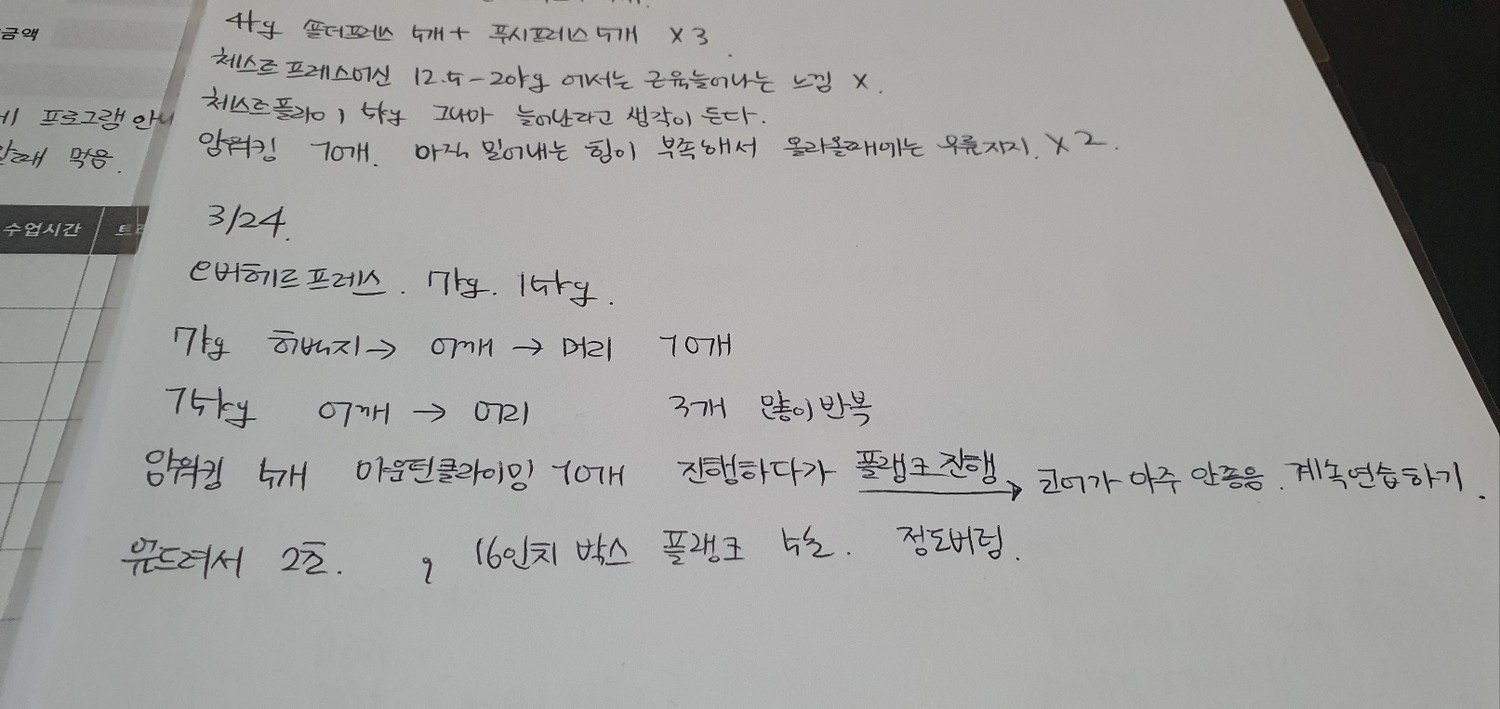 금액
4kg 숄더프레스 5개 + 푸시프레스 5개 X 3
체스트프레스머신 12.5-20kg 에서는 근육늘어나는 느낌 X.
프로그램 안
체스트플라이 5kg 그나마 늘어난다고 생각이 든다.
암워킹 10개. 아직 밀어내는 힘이 부족해서 올라올때에는 무릎지지. X 2.
먹음.
3/24.
수업시간
오버헤드프레스. 7kg. 15kg.
7kg 허벅지→ 어깨 → 머리 10개
15kg 어깨 → 머리 3개 많이반복
암워킹 5개 마운틴클라이밍 10개 진행하다가 플랭크 진행 → 코어가 아주 안좋음. 계속연습하기.
엎드려서 2초. , 16인치 박스 플랭크 5초. 정도버팀.